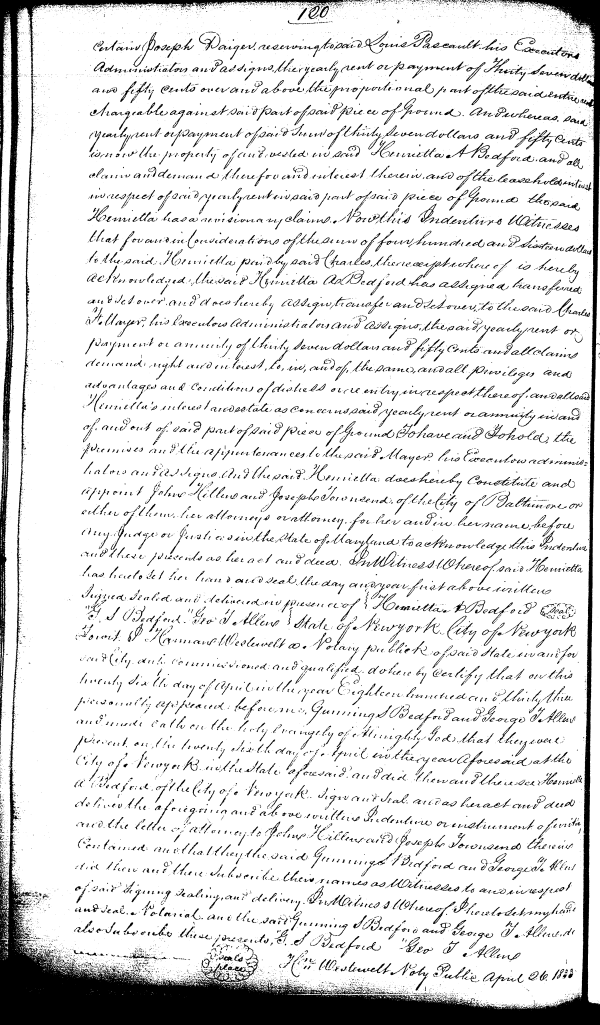 100
certain Joseph Daiger, reserving to said Louis Pascault his Executors
Administrators and assigns, the yearly rent or payment of Thirty Seven dollars
and fifty cents over and above the proportional part of the said entire rent
chargeable against said part of said piece of Ground. And whereas, said
yearly rent or payment of said Sum of thirty seven dollars and fifty cents
is now the property of and vested in said Henrietta A Bedford, and all
claim and demand therefor and interest therein, and of the leasehold interest
in respect of said yearly rent in said part of said piece of Ground the said
Henrietta has a revisionary claim. Now this Indenture Witnesses
that for and in Considerations of the sum of four hundred and Sixteen dollars
to the said Henrietta paid by said Charles, the receipt whereof is hereby
acknowledged, the said Henrietta A Bedford has assigned, transferred
and set over, and does hereby assign, transfer and set over, to the said Charles
F. Mayer, his Executors Administrators and assigns, the said yearly rent or
payment or annuity of thirty seven dollars and fifty Cents and all claims
demand, right and interest, to, in, and of, the same, and all privileges and
advantages and conditions of distress or re entry, in respect thereof, and all said
Henrietta's interest and estate as concerns said yearly rent or annuity in and
of, and out of said part of said piece of Ground To have and To hold, the
premises and the appurtenances to the said Mayer, his Executors adminis-
trators and assigns. And the said Henrietta does hereby Constitute and
appoint Johns Hillens and Joseph Townsend, of the City of Baltimore or
either of them, her attorneys or attorney, for her and in her name, before
any Judge or Justices in the State of Maryland to acknowledge this Indenture
and these presents as her act and deed. In Witness Whereof said Henrietta
has hereto set her hand and seal, the day and year first above written
Signed Sealed and delivered in presence of } Henrietta A Bedford (Seal)
"G. S Bedford "Geo T Allens } State of New york City of New york
Towit. I Harmans Westervelt a Notary publick of said State in and for
said City, duly commissioned and qualified, do hereby certify that on this
twenty sixth day of April in the year Eighteen hundred and thirty three
personally appeared before me Gunning S Bedford and George T Allens
and made oath on the holy Evangely of Almighty God that they were
present on the twenty sixth day of April in the year aforesaid at the
City of New york in the State aforesaid, and did then and there see Henrietta
A Bedford, of the City of New york sign and seal, and as her act and deed
deliver the aforegoing and above written Indenture or instrument of writing,
and the letter of attorney to Johns Hillens and Joseph Townsend therein
Contained and that they the said Gunning S Bedford and George T Allens
did then and there Subscribe their names as Witnesses to and in respect
of said signing sealing and delivery. In Witness Whereof, I hereto set my hand
and seal Notarial and the said Gunning S Bedford and George T Allens do
also Subscribe these presents, "G. S Bedford "Geo T Allens
Seals place
Hns Westervelt Noty Public April 26. 1833